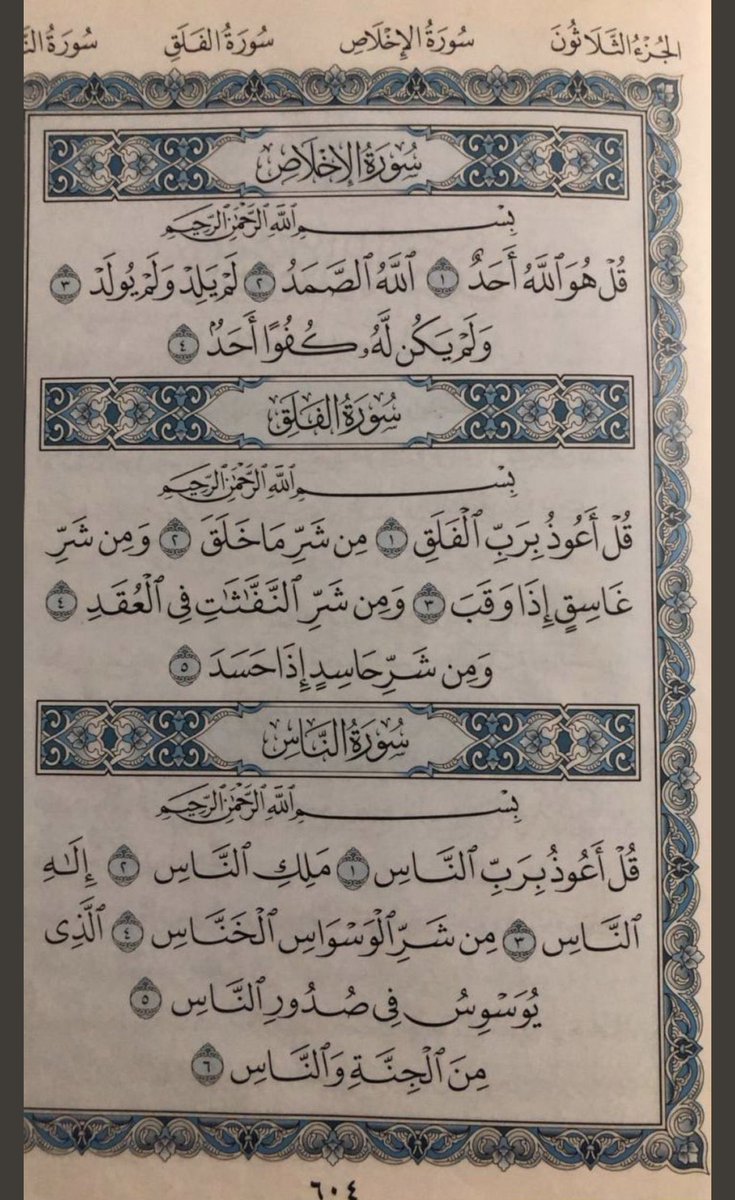 الجُزْءُ الثَّلَاثُونَ سُورَةُ الإِخْلَاصِ سُورَةُ الفَلَقِ سُورَةُ
سُورَةُ الإِخْلَاصِ
بِسْمِ ٱللَّهِ ٱلرَّحْمَٰنِ ٱلرَّحِيمِ
قُلْ هُوَ ٱللَّهُ أَحَدٌ ١ ٱللَّهُ ٱلصَّمَدُ ٢ لَمْ يَلِدْ وَلَمْ يُولَدْ ٣
وَلَمْ يَكُن لَّهُۥ كُفُوًا أَحَدٌۢ ٤
سُورَةُ الفَلَقِ
بِسْمِ ٱللَّهِ ٱلرَّحْمَٰنِ ٱلرَّحِيمِ
قُلْ أَعُوذُ بِرَبِّ ٱلْفَلَقِ ١ مِن شَرِّ مَا خَلَقَ ٢ وَمِن شَرِّ
غَاسِقٍ إِذَا وَقَبَ ٣ وَمِن شَرِّ ٱلنَّفَّٰثَٰتِ فِى ٱلْعُقَدِ ٤
وَمِن شَرِّ حَاسِدٍ إِذَا حَسَدَ ٥
سُورَةُ النَّاسِ
بِسْمِ ٱللَّهِ ٱلرَّحْمَٰنِ ٱلرَّحِيمِ
قُلْ أَعُوذُ بِرَبِّ ٱلنَّاسِ ١ مَلِكِ ٱلنَّاسِ ٢ إِلَٰهِ
ٱلنَّاسِ ٣ مِن شَرِّ ٱلْوَسْوَاسِ ٱلْخَنَّاسِ ٤ ٱلَّذِى
يُوَسْوِسُ فِى صُدُورِ ٱلنَّاسِ ٥
مِنَ ٱلْجِنَّةِ وَٱلنَّاسِ ٦
٦٠٤